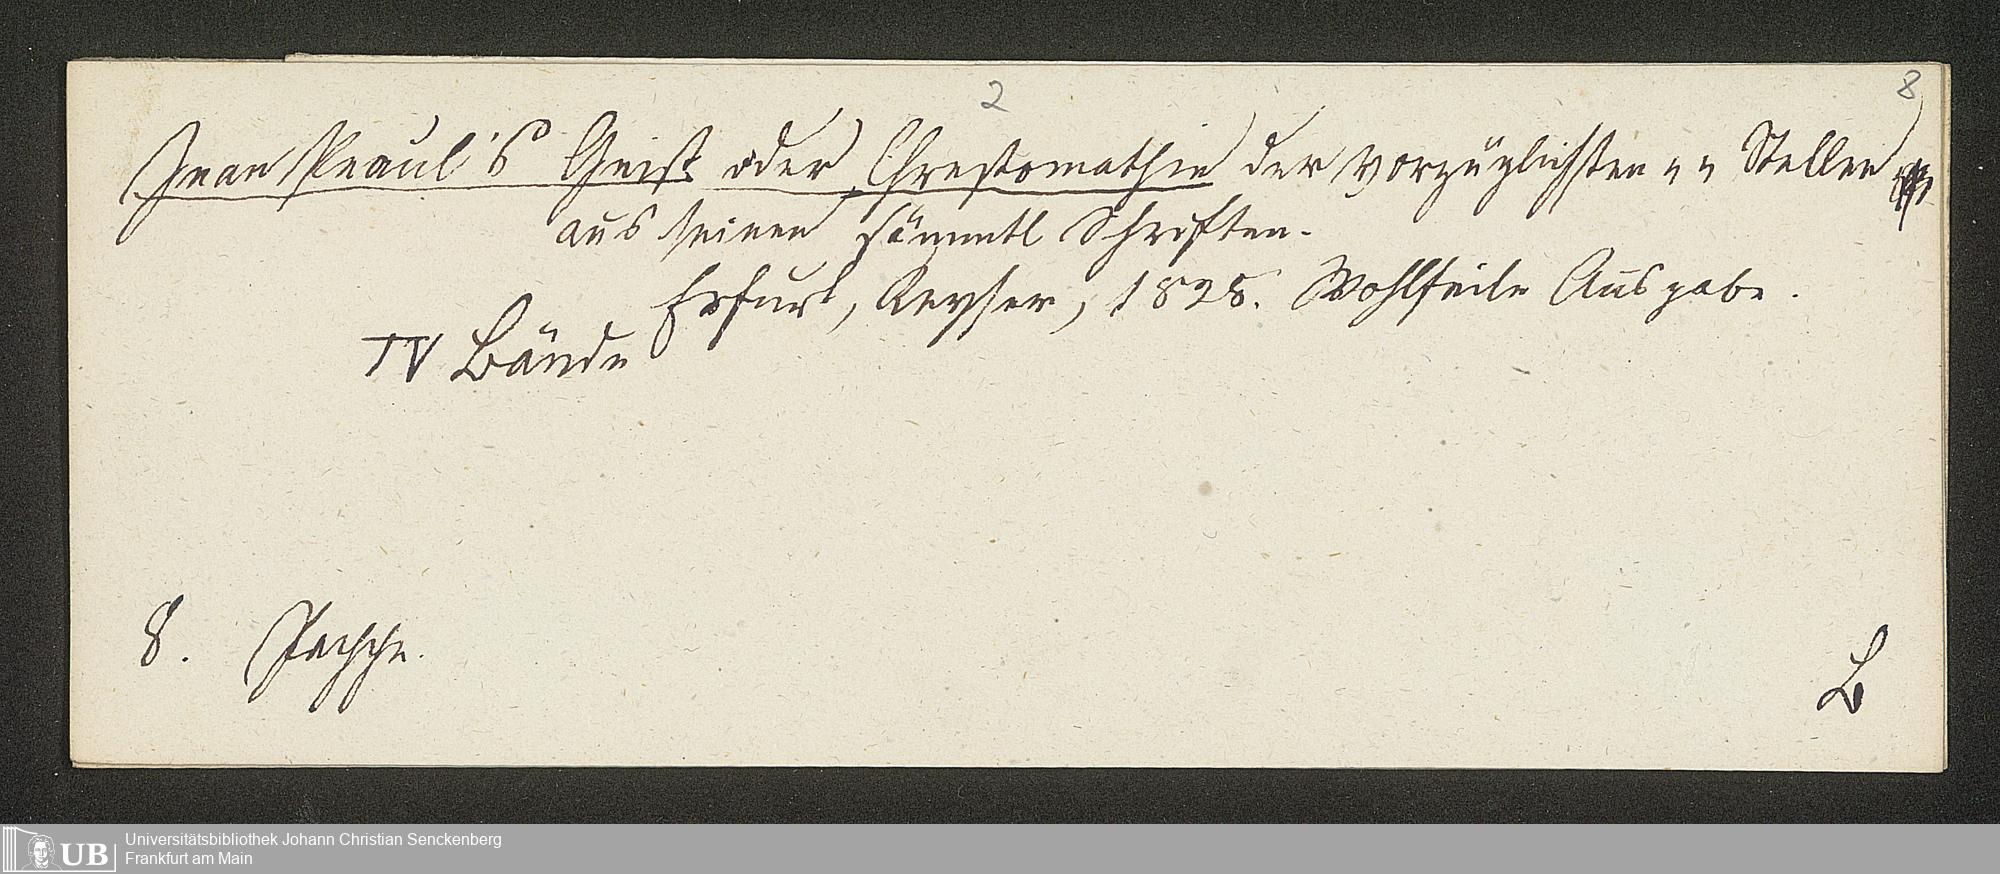 2
8
Jean Paul's Geist oder Chrestomathie der vorzüglichsten " " Stellen
aus seinen sämmtl Schriften.
Erfurt, Keyser, 1828. Wohlfeile Ausgabe.
IV Bände
8. Pappe.
B
Universitätsbibliothek Johann Christian Senckenberg
Frankfurt am Main
UB